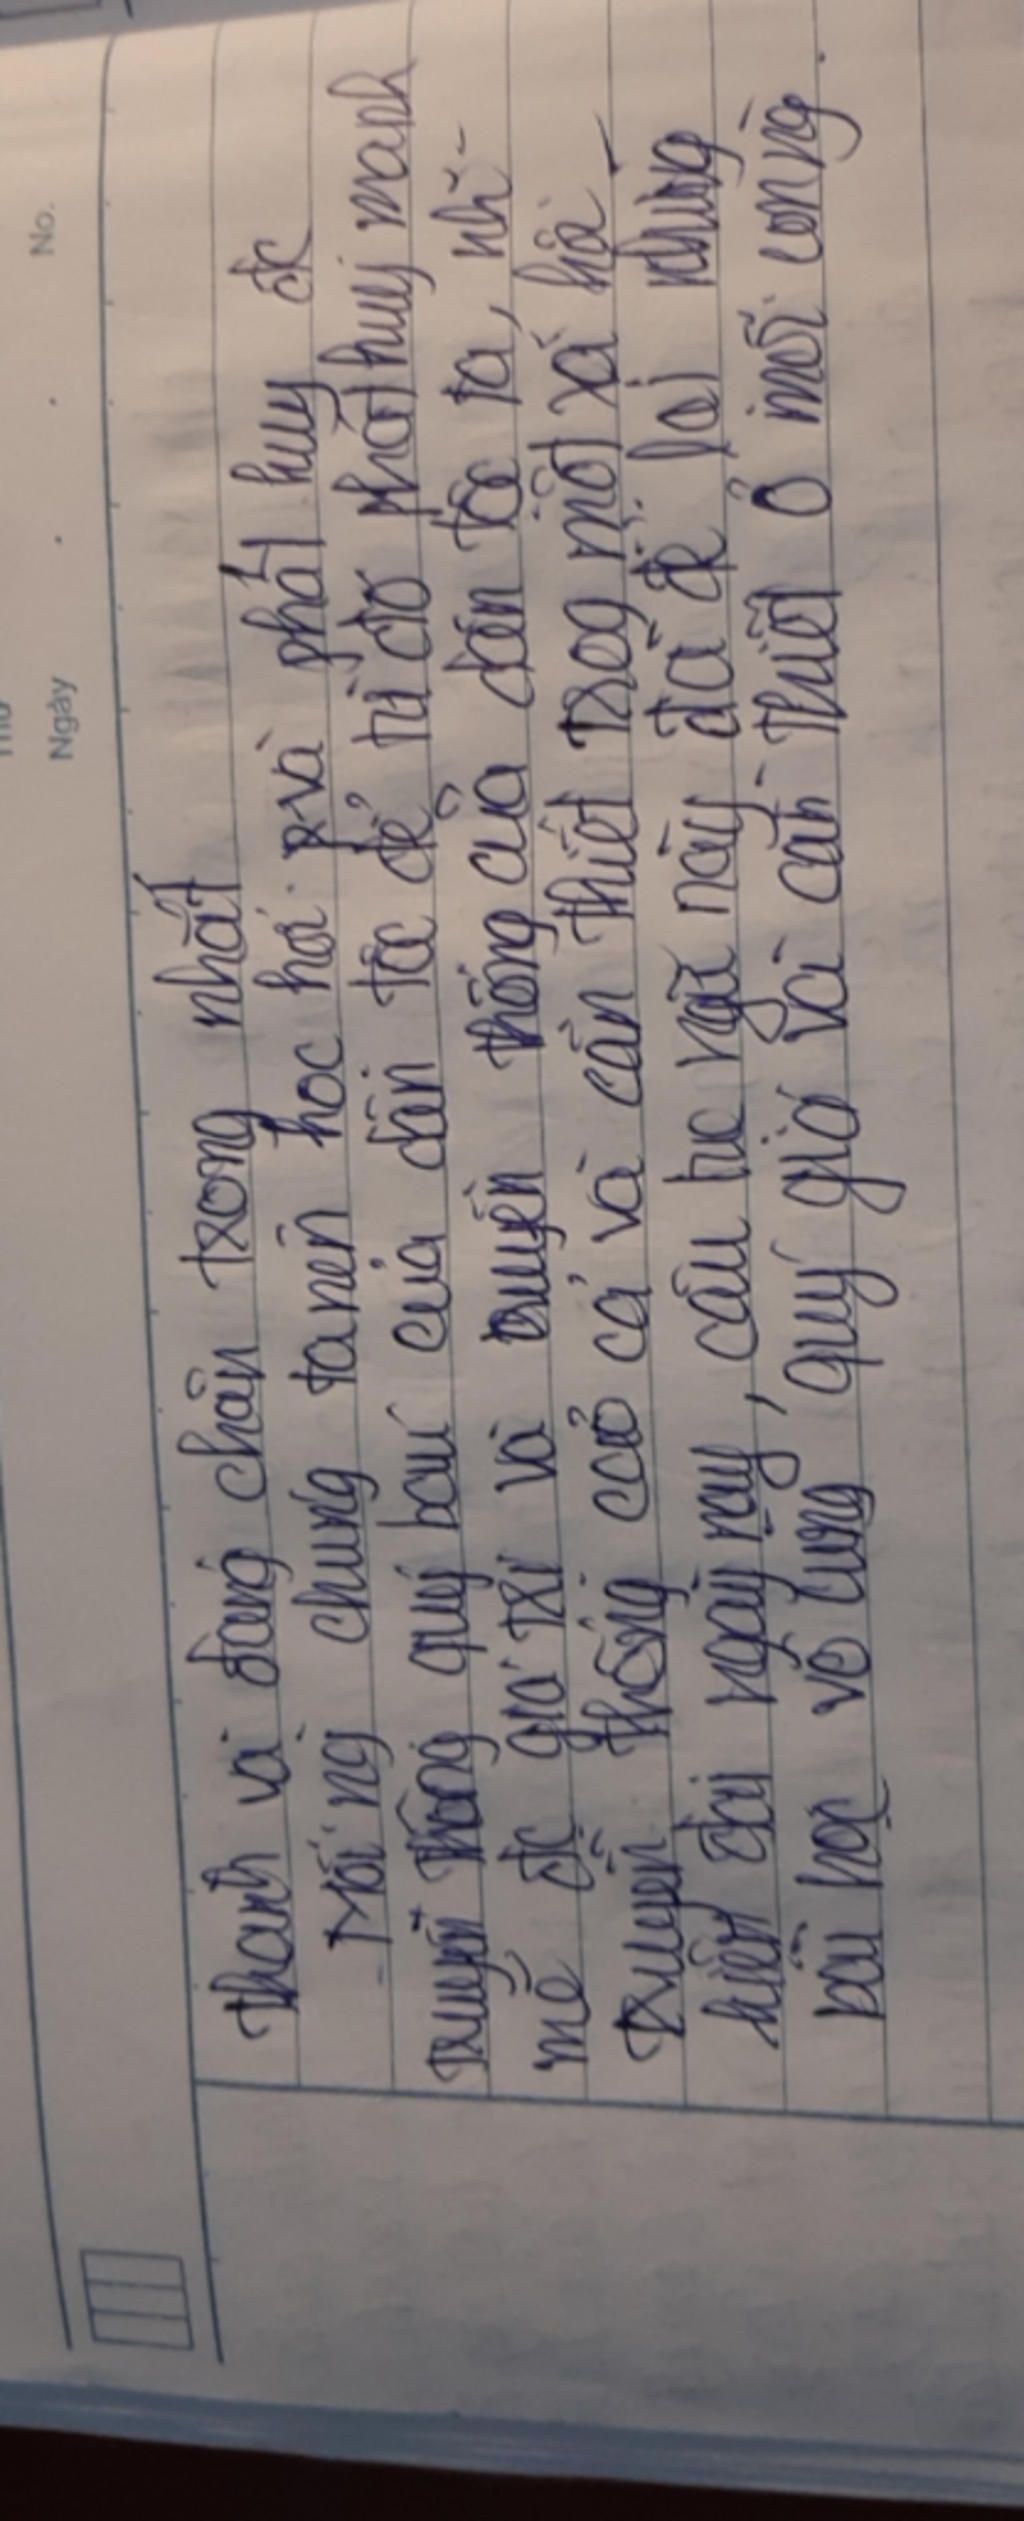 Ngày No.
thanh và đáng chân trọng nhất
- Mỗi ng chúng ta nên học hỏi và phát huy đc
truyền thống quý báu của dân tộc để từ đó phát huy mạnh
mẽ đc giá trị và truyền thống của dân tộc ta, nh
truyền thống cao cả và cần thiết trog một xã hội
hiện đại ngày nay, câu tục ngữ này đã để lại những
bài học vô cùng quý giá và cần thiết ở mỗi con ng.